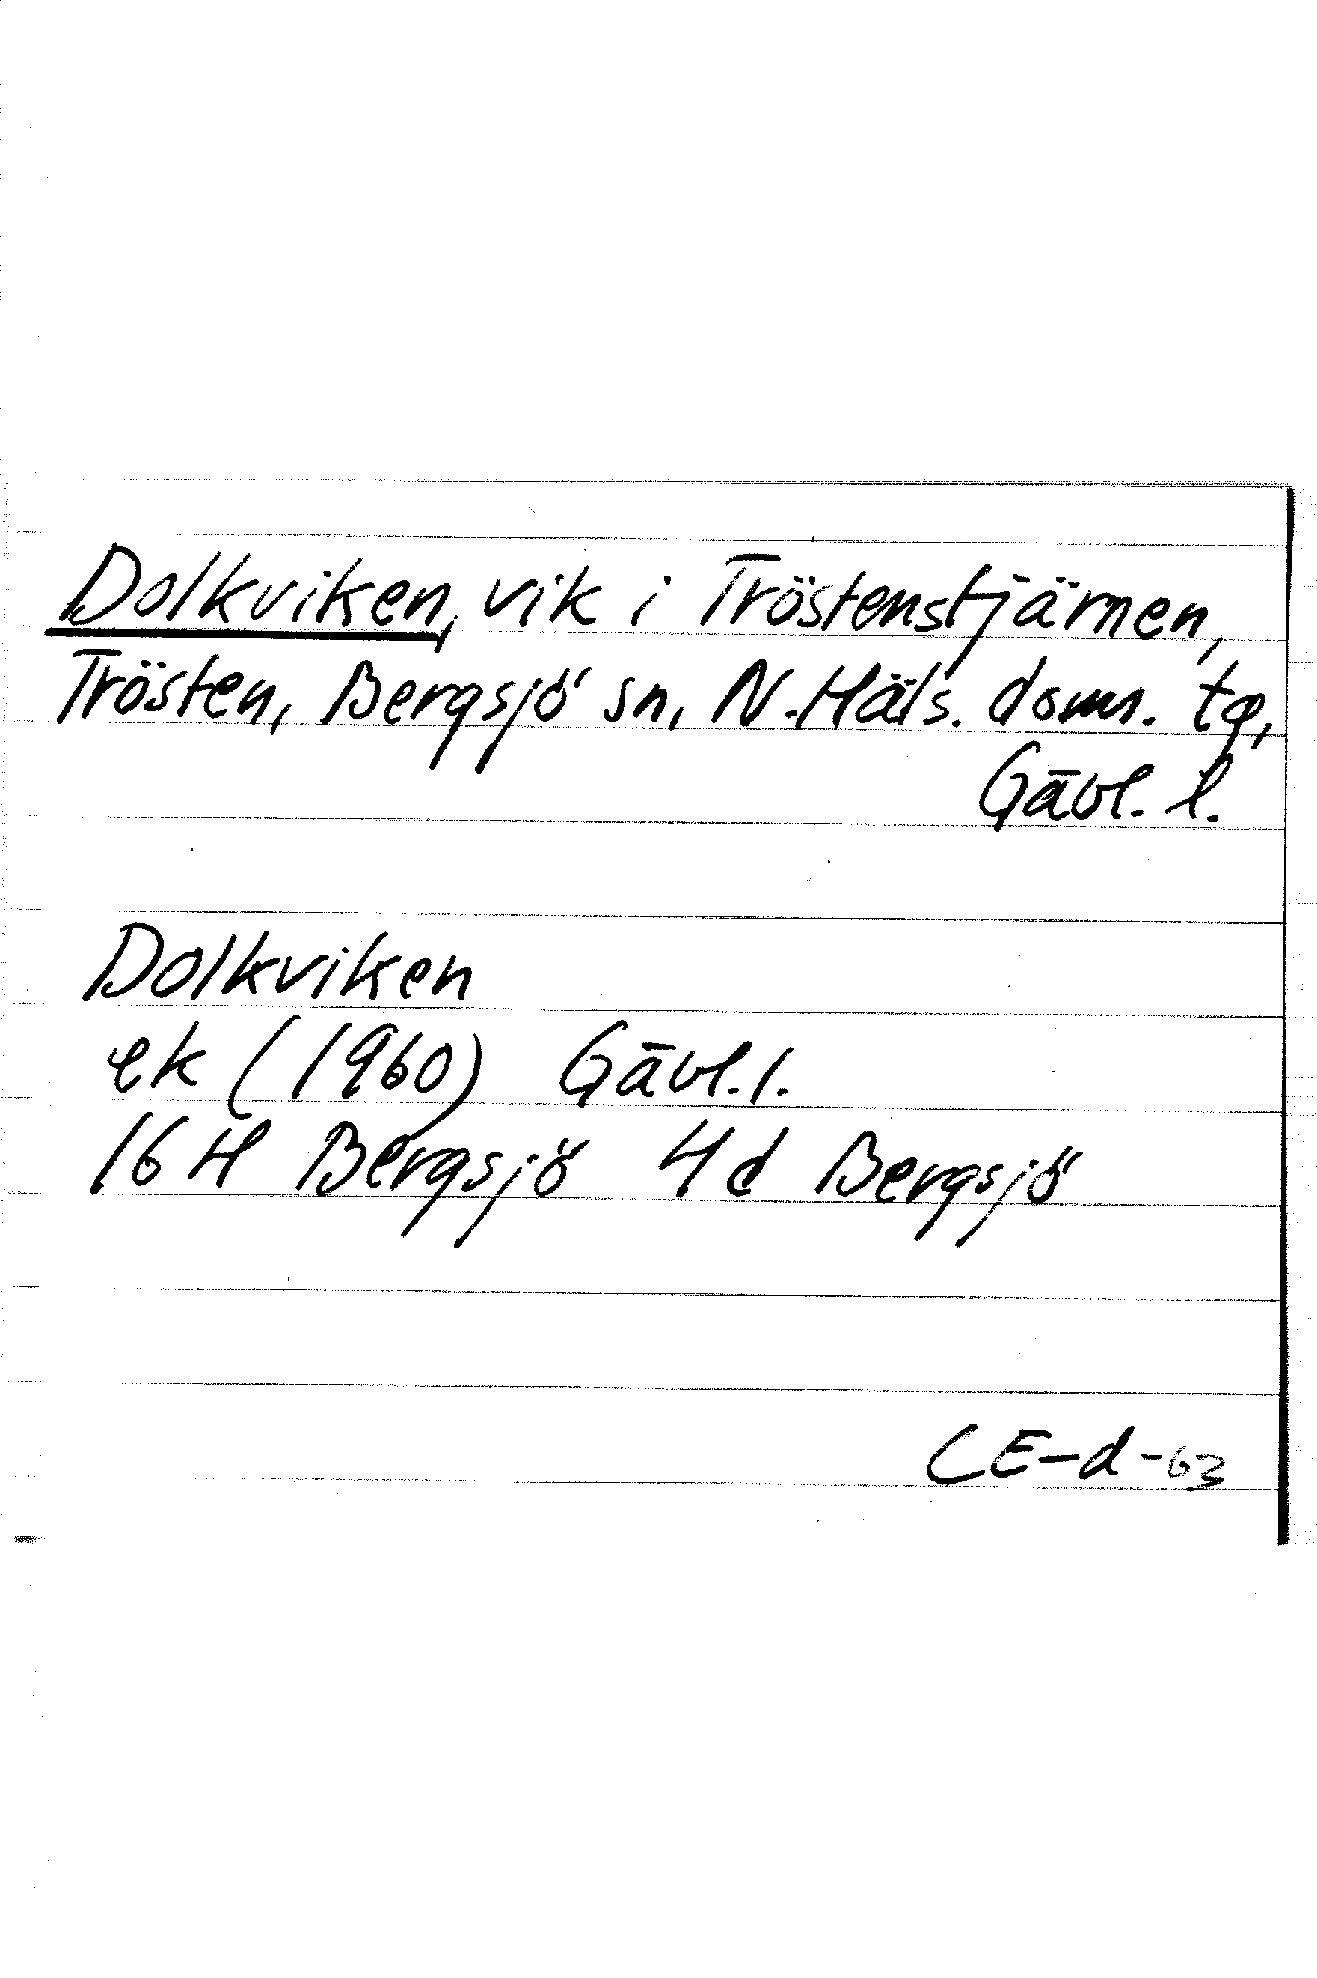 Dolkviken, vik i Tröstenstjärnen,
Trösten, Bergsjö sn, N. Häls. doms. tg,
Gävl. l.
Dolkviken
ek (1960) Gävl. l.
16 H Bergsjö 4d Bergsjö
CE-d-63